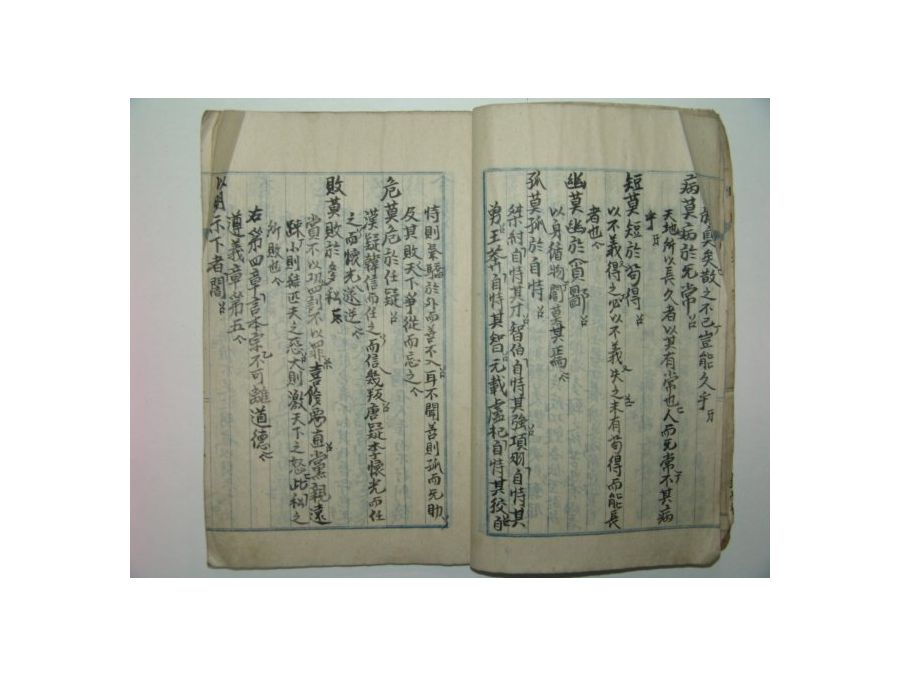 臭矣散之不已豈能久乎
病莫病於无常
天地所以長久者以其有常也人而无常不其病
乎
短莫短於苟得
以不義得之必以不義失之未有苟得而能長
者也
幽莫幽於貪鄙
以身徇物闇莫甚焉
孤莫孤於自恃
桀紂自恃其才智伯自恃其強項羽自恃其
勇王莽自恃其智元載盧杞自恃其狡自
恃則氣驕於外而善不入耳不聞善則孤而无助
及其敗天下爭從而忘之
危莫危於任疑
漢疑韓信而任之而信幾叛唐疑李懷光而任
之而懷光遂逆
敗莫敗於多私
賞不以功罰不以罪喜佞惡直黨親遠
疎小則結匹夫之怨大則激天下之怒此私之
所敗也
右第四章言本宗不可離道德
遵義章第五
以明示下者闇